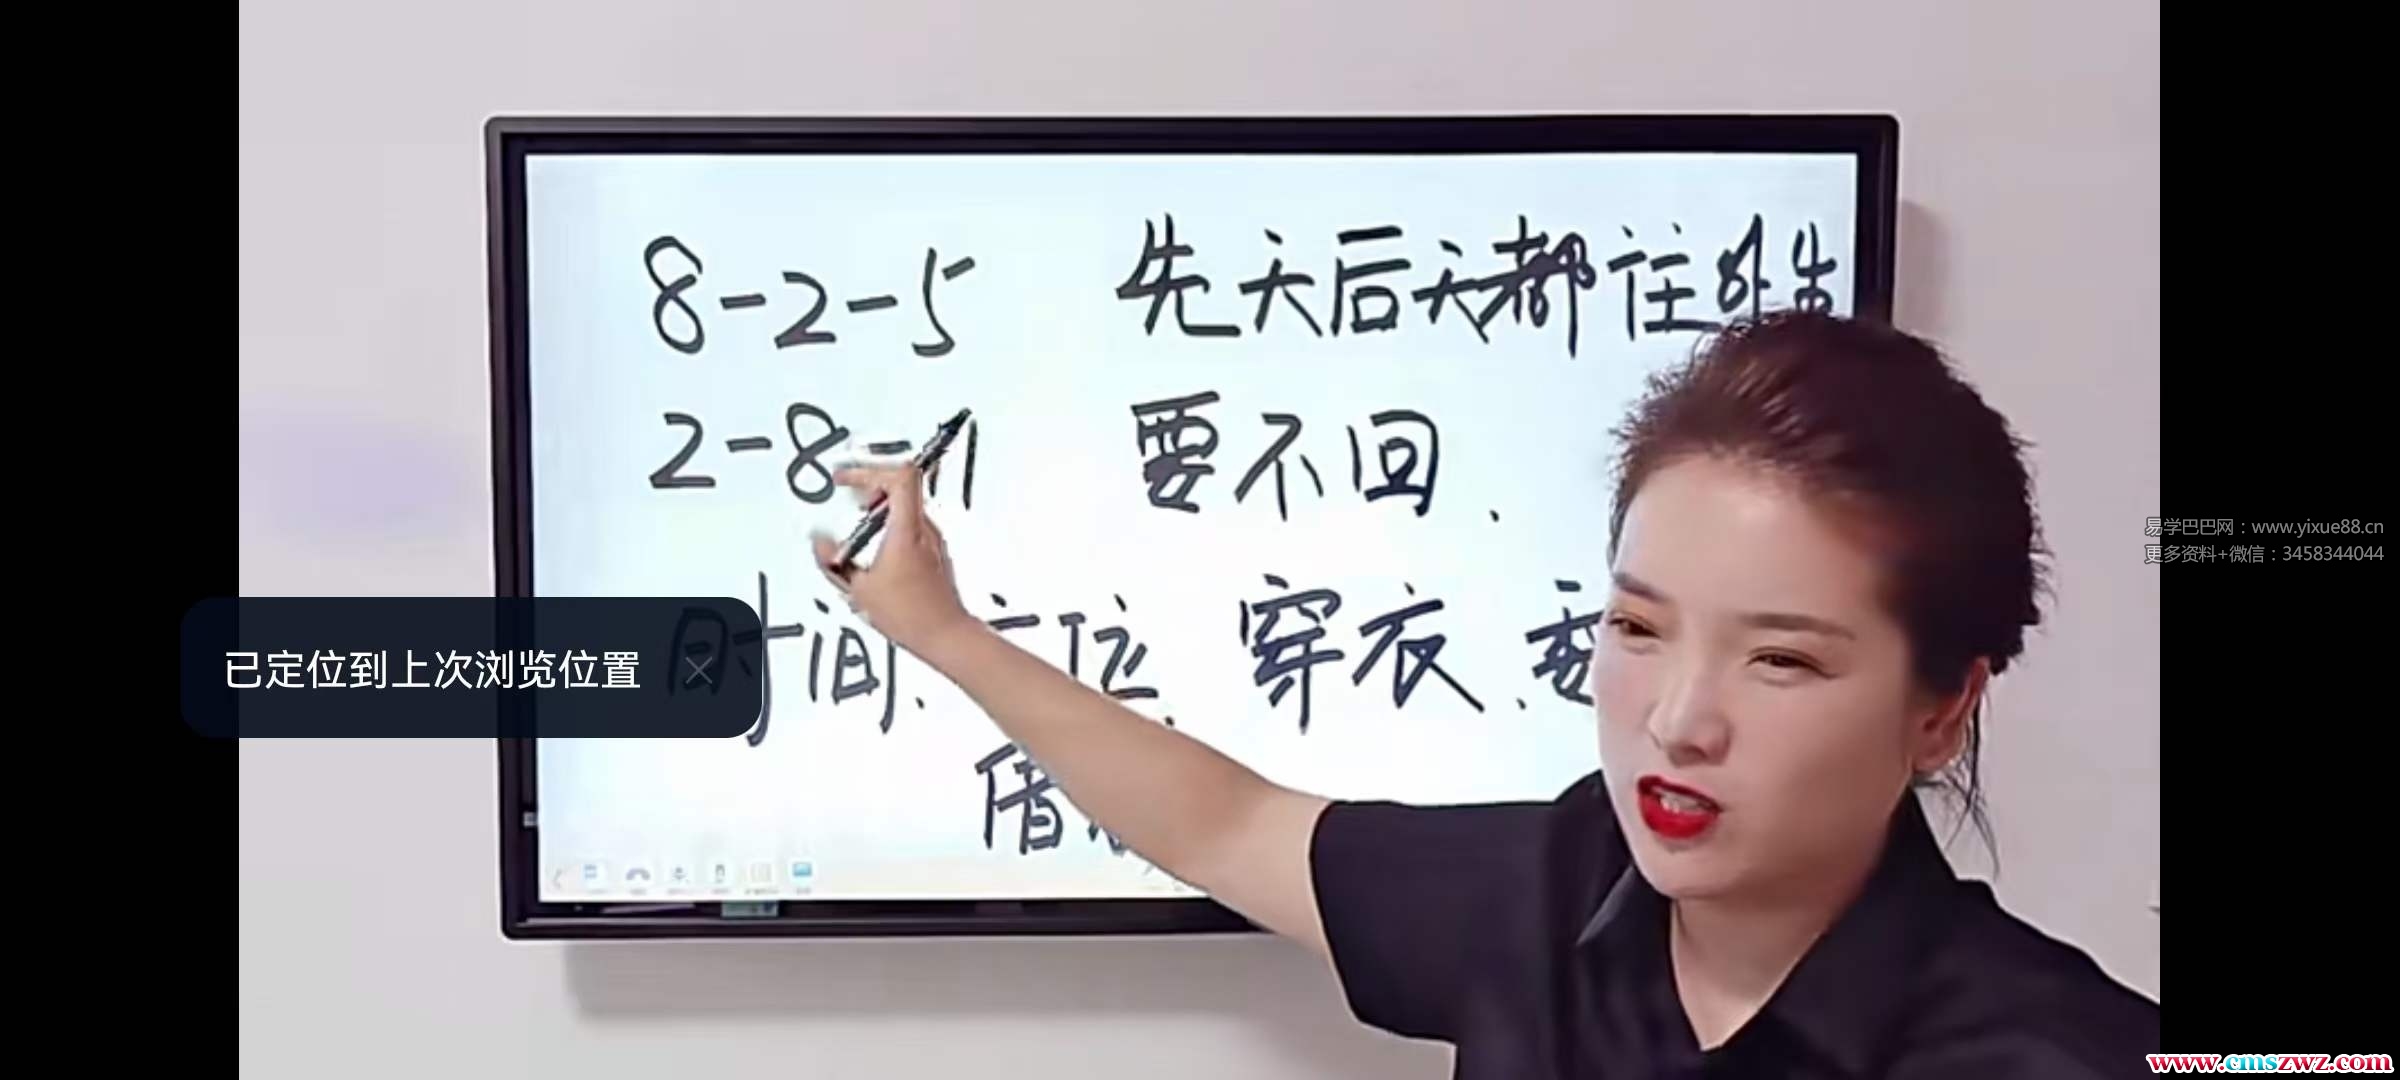 8-2-5 先天后天都往外出
2-8-11 要不回.
时间、方位、穿衣、
借
已定位到上次浏览位置 ×
易学巴巴网：www.yixue88.cn
更多资料+微信：3458344044
www.cmszwz.com